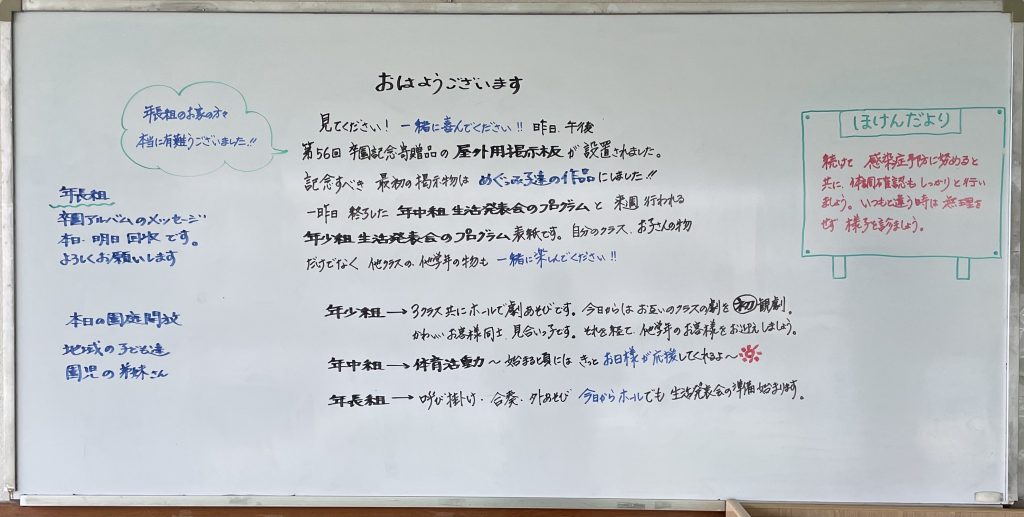 おはようございます
年長組のお家の方々
本当に有難うございました!!
見てください! 一緒に喜んでください!! 昨日、午後
第56回 卒園記念寄贈品の 屋外用掲示板 が 設置されました。
記念すべき 最初の掲示物は めぐみ子達の作品にしました!!
一昨日 終了した 年中組 生活発表会のプログラムと 来週 行われる
年少組 生活発表会のプログラム表紙です。自分のクラス、お子さんの物
だけでなく 他クラスの、他学年の物も 一緒に楽しんでください!!
年少組→3クラス共にホールで劇あそびです。今日からは お互いのクラスの劇を 初 観劇。
かわいいお客様同士、見合いっ子です。それを経て、他学年のお客様をお迎えしましょう。
年中組→体育活動〜始まる頃には きっと お日様が応援してくれるよ〜
年長組→呼び掛け・合奏・外あそび 今日からホールでも 生活発表会の準備始まります。
年長組
卒園アルバムのメッセージ
本日、明日 回収 です。
よろしくお願いします
本日の園庭開放
地域の子ども達
園児の弟妹さん
ほけんだより
続けて 感染症予防に努めると
共に、体調確認もしっかりと行い
ましょう。いつもと違う時は 無理を
せず 様子を診ましょう。